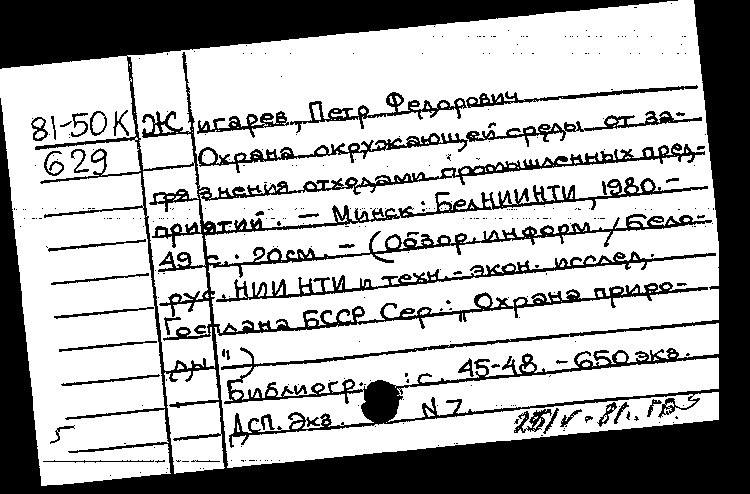 81-50К Жигарев, Петр Федорович
629 Охрана окружающей среды от за-
грязнения отходами промышленных пред-
приятий. — Минск: БелНИИНТИ, 1980.—
49 с.; 20см. — (Обзор. информ. / Бело-
рус. НИИ НТИ и техн.-экон. исслед.
Госплана БССР Сер.: „Охрана приро-
ды")
Библиогр.: с. 45-48. - 650 экз.
ДСП. Экз. N 7.
5